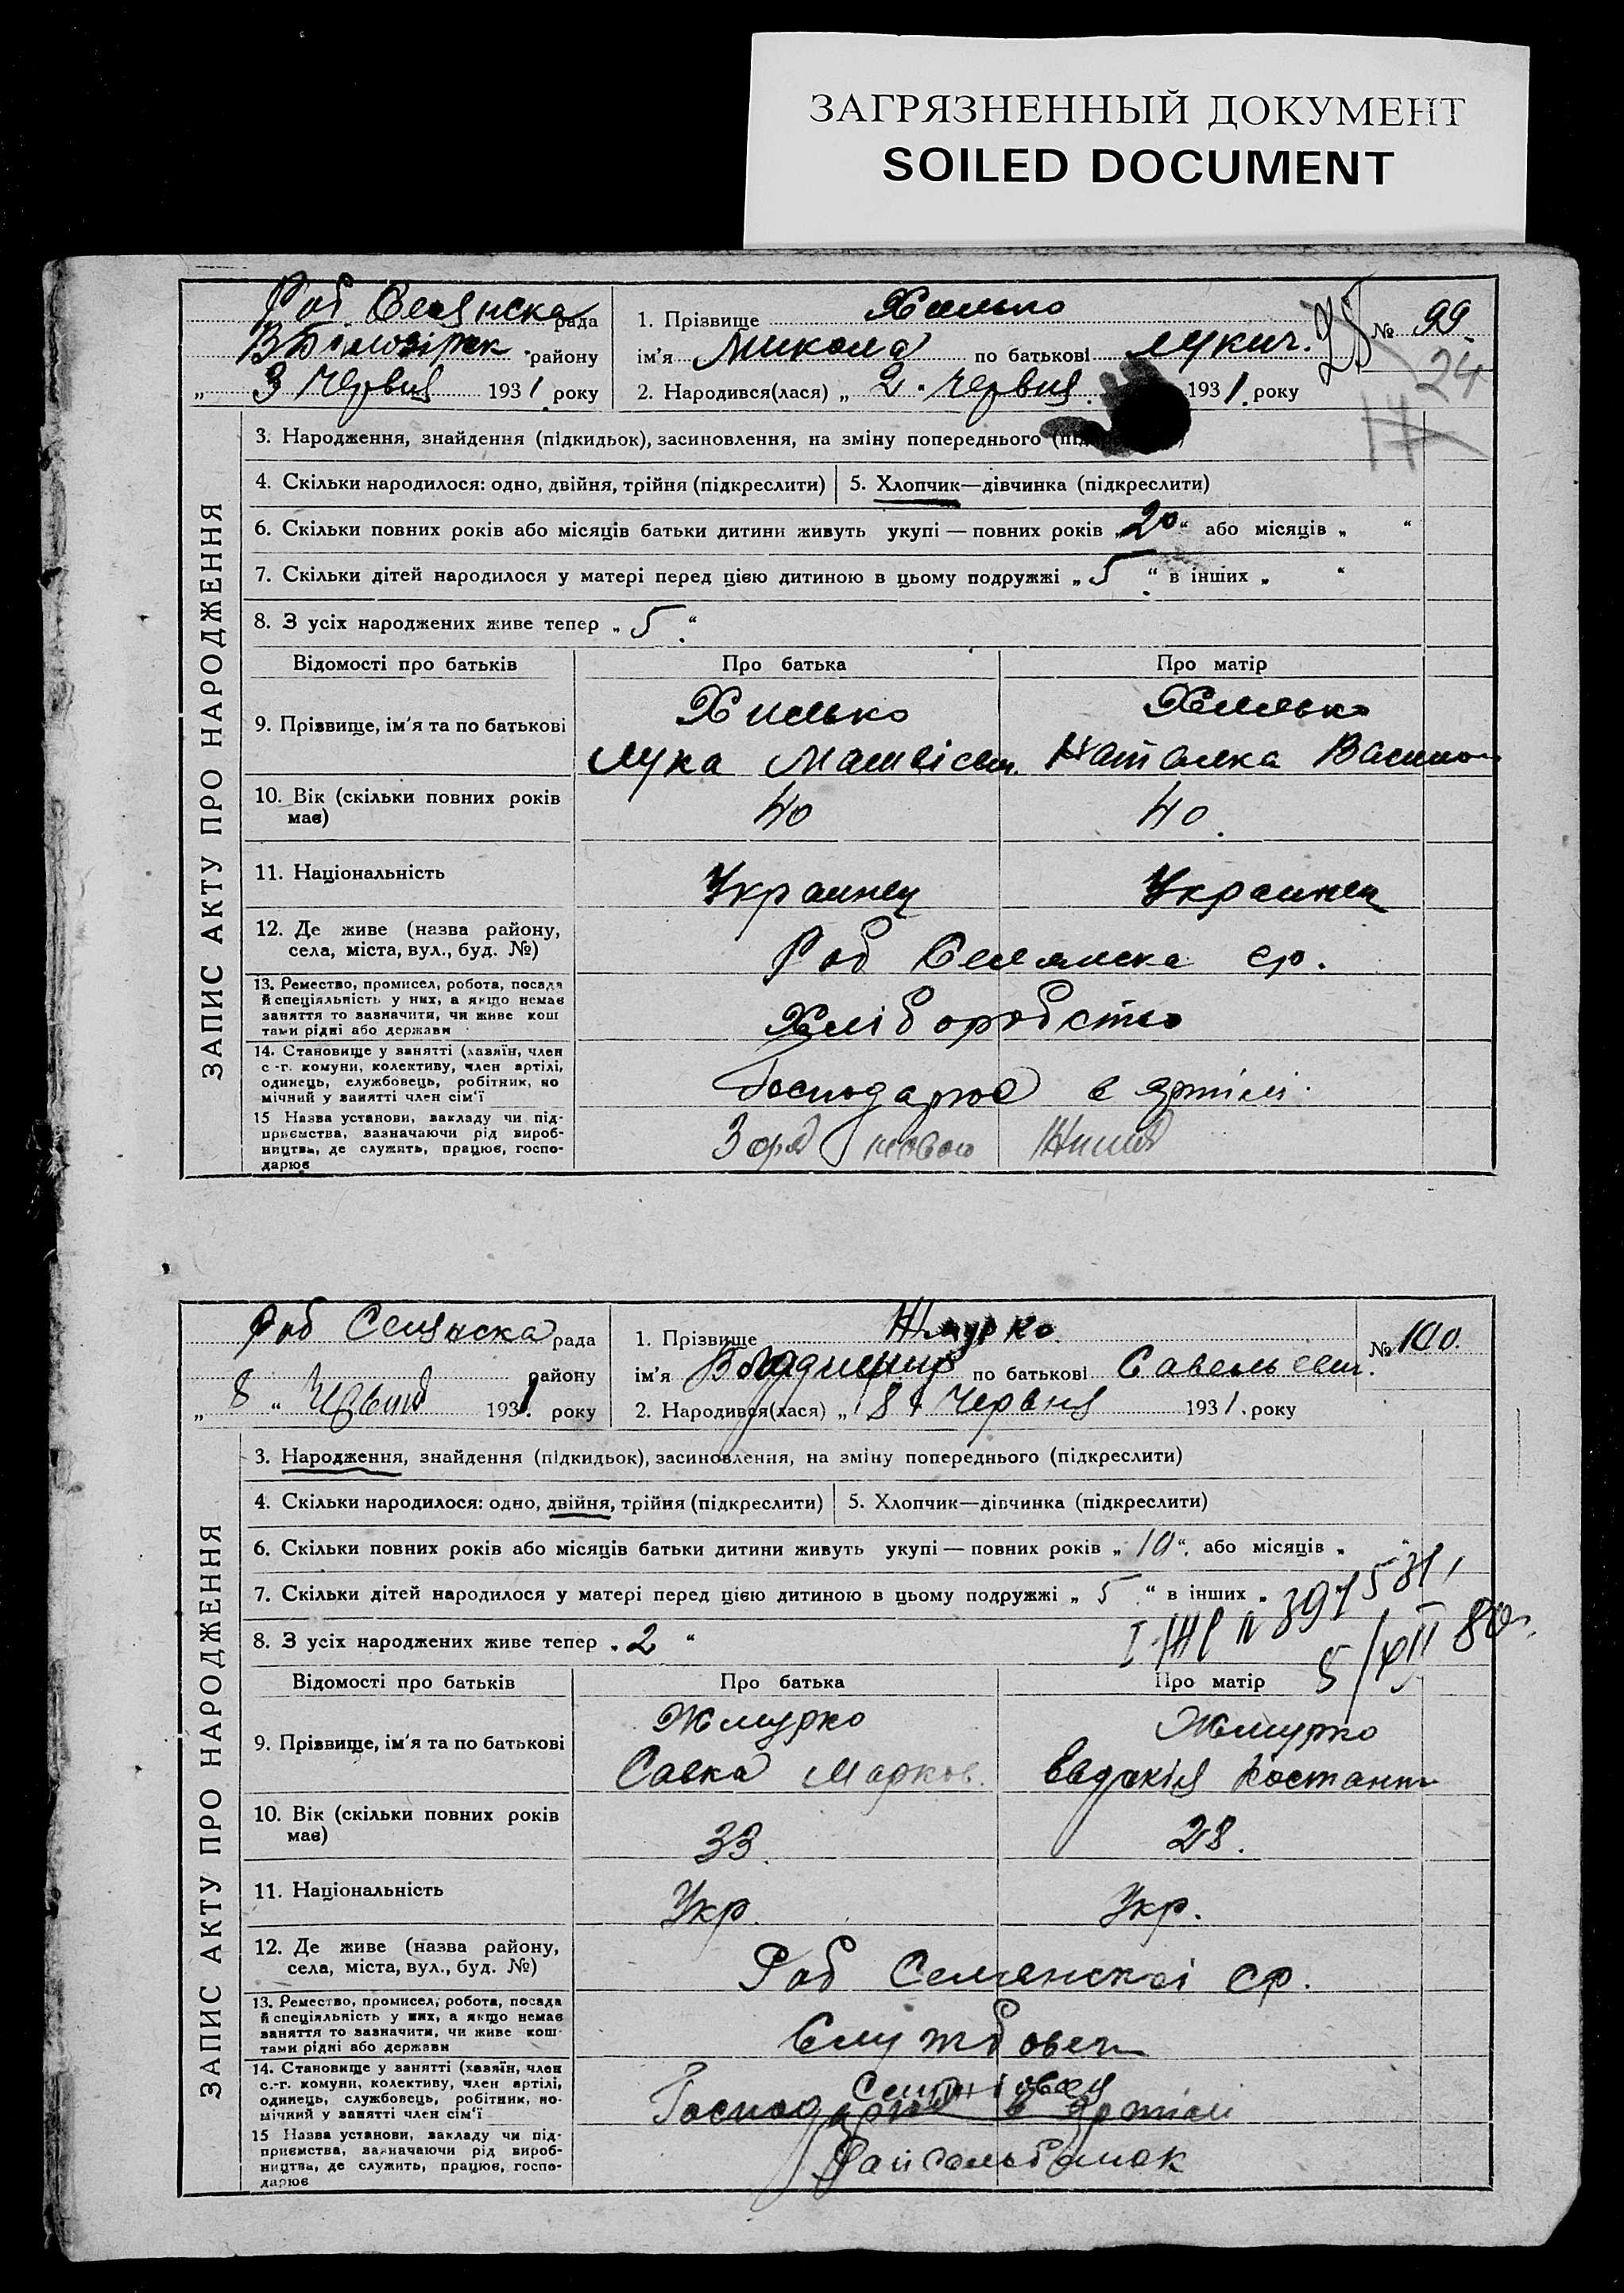 ЗАГРЯЗНЕННЫЙ ДОКУМЕНТ
SOILED DOCUMENT
Роб Селянска рада
району
„ 3 Червня 1931. року
1. Прізвище Хилько
ім'я Микола по батькові Лукич.
2. Народився(лася) „ 2 . Червня 1931. року
№ 99
25
24
17
ЗАПИС АКТУ ПРО НАРОДЖЕННЯ
3. Народження, знайдення (підкидьок), засиновлення, на зміну попереднього
4. Скільки народилося: одно, двійня, трійня (підкреслити)
5. Хлопчик—дівчинка (підкреслити)
6. Скільки повних років або місяців батьки дитини живуть укупі — повних років „ 20 “ або місяців „ “
7. Скільки дітей народилося у матері перед цією дитиною в цьому подружжі „ 5 “ в інших „ “
8. З усіх народжених живе тепер „ 5 “
Відомості про батьків Про батька Про матір
9. Прізвище, ім'я та по батькові
Хилько
Лука Матвієвич.
Хилько
Наталка
10. Вік (скільки повних років має)
40
40.
11. Національність
Украинец
Украинец
12. Де живе (назва району, села, міста, вул., буд. №)
Роб Селянска ср.
13. Ремество, промисел, робота, посада
й спеціяльність у них, а якщо немає
заняття то зазначити, чи живе кош
тами рідні або держави
Хліборобство
14. Становище у занятті (хазяїн, член
с-г. комуни, колективу, член артілі,
одинець, службовець, робітник, по
мічний у занятті член сім'ї
Господарює в артілі
15 Назва установи, закладу чи під-
приємства, зазначаючи рід вироб-
ництва, де служить, працює, госпо-
дарює
Роб Селянска рада
району
„ 8 “ Червня 1931. року
1. Прізвище Жмурко
ім'я Володимир по батькові Савельевич.
2. Народився(лася) „ 8 Червня 1931. року
№ 100.
ЗАПИС АКТУ ПРО НАРОДЖЕННЯ
3. Народження, знайдення (підкидьок), засиновлення, на зміну попереднього (підкреслити)
4. Скільки народилося: одно, двійня, трійня (підкреслити)
5. Хлопчик—дівчинка (підкреслити)
6. Скільки повних років або місяців батьки дитини живуть укупі — повних років „ 10 “. або місяців „ “
7. Скільки дітей народилося у матері перед цією дитиною в цьому подружжі „ 5 “ в інших „
8. З усіх народжених живе тепер „ 2 “
Відомості про батьків Про батька Про матір
9. Прізвище, ім'я та по батькові
Жмурко
Савка Марков.
Жмурко
Евдокія Костант
10. Вік (скільки повних років має)
33.
28.
11. Національність
Укр.
Укр.
12. Де живе (назва району, села, міста, вул., буд. №)
Роб Селянскоі ср.
13. Ремество, промисел, робота, посада
й спеціяльність у них, а якщо немає
заняття то зазначити, чи живе кош-
тами рідні або держави
Службовец
14. Становище у занятті (хазяїн, член
с.-г. комуни, колективу, член артілі,
одинець, службовець, робітник, по-
мічний у занятті член сім'ї
Господарює в артілі
15 Назва установи, закладу чи під-
приємства, зазначаючи рід вироб-
ництва, де служить, працює, госпо-
дарює